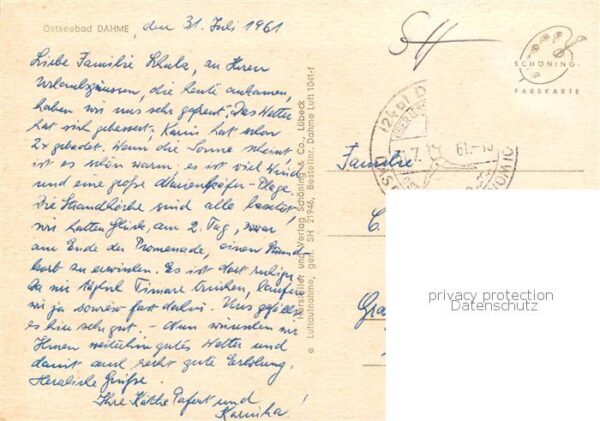 Ostseebad DAHME, den 31. Juli 1961
Liebe Familie Schulz, an Ihren
Urlaubsgrüssen, die heute ankamen,
haben wir uns sehr gefreut. Das Wetter
hat sich gebessert, hat schon
2x gebadet. Wenn die Sonne scheint,
ist es schön warm; es ist viel Wind
und eine große Marienkäfer-Plage.
Die Strandkörbe sind alle besetzt,
wir hatten Glück, am 2. Tag, zwar
am Ende der Promenade, einen Strand
korb zu erwischen. Es ist dort ruhiger
da wir täglich laufen
wir ja sowieso fast dahin. Uns gefällt
es hier sehr gut. - Nun wünschen wir
Ihnen weiterhin gutes Wetter und
damit auch recht gute Erholung.
Herzliche Grüße
Ihre Käthe und
Hersteller und Verlag Schöning & Co., Lübeck
e Luftaufnahme, gen. SH 21946, Bestellnr. Dahme Luft 1041-f
SCHÖNING-
FARBKARTE
61.-18
Familie
C.
Gra
privacy protection
Datenschutz